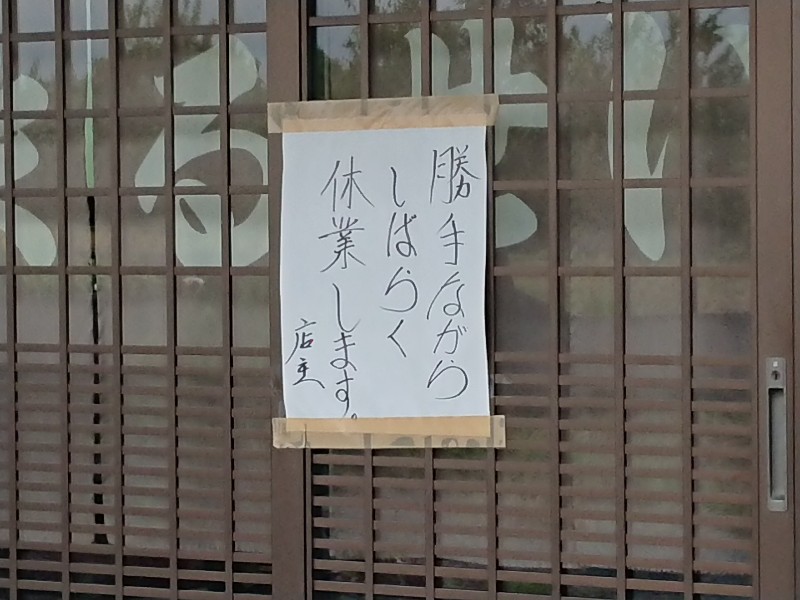 勝手ながら
しばらく
休業します。
店主